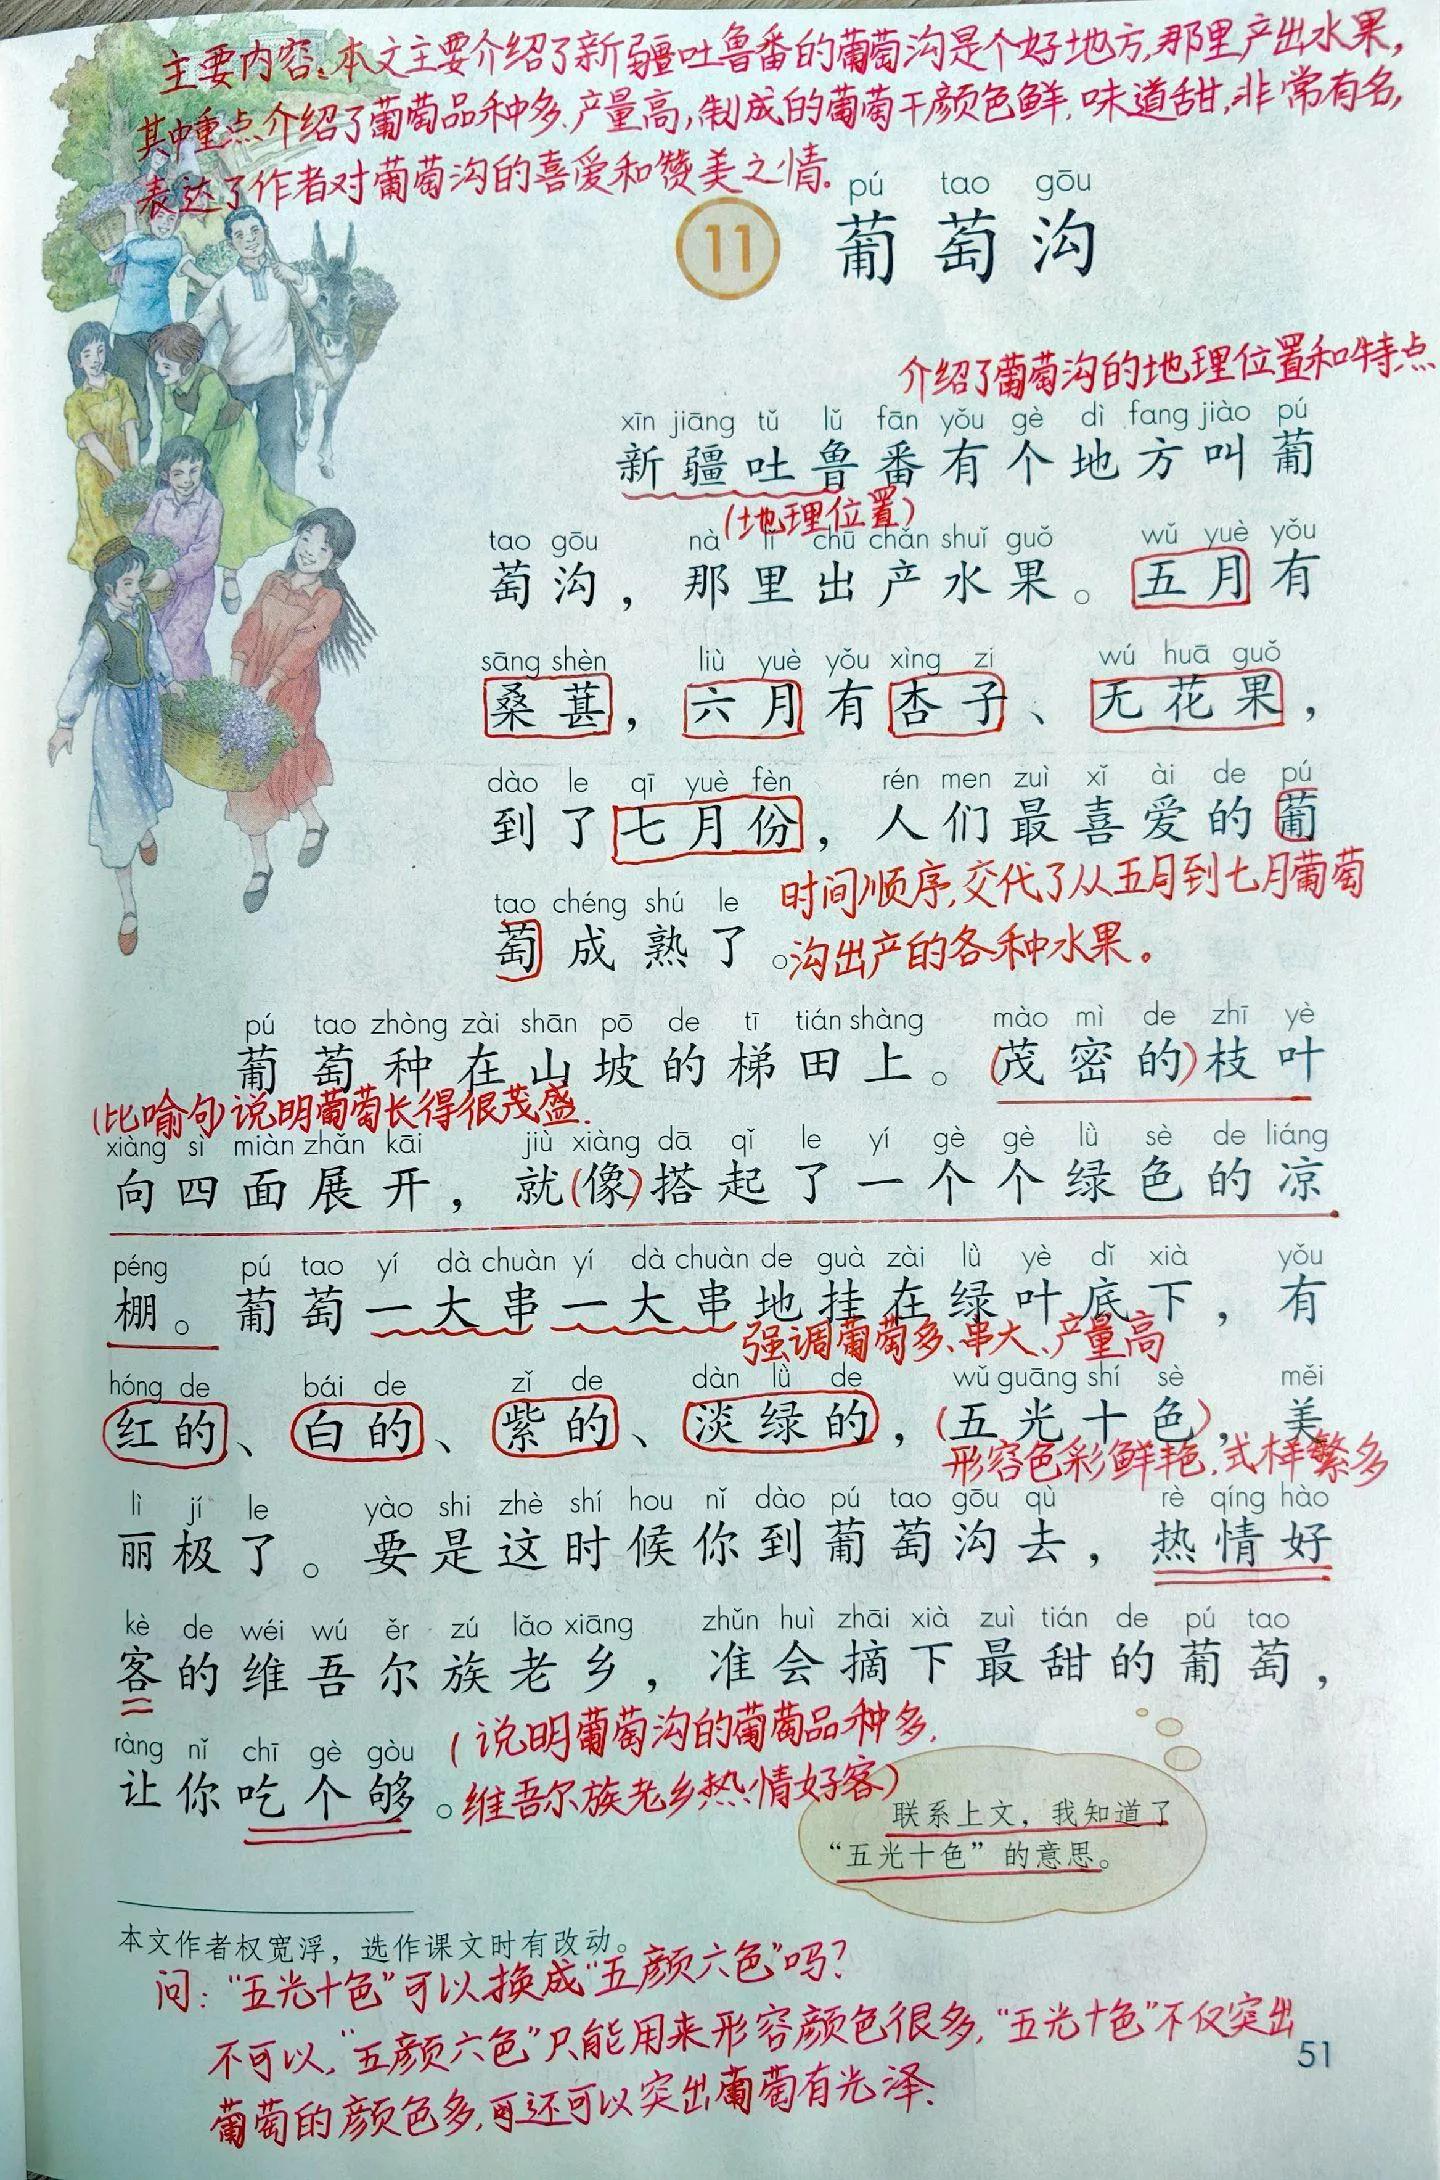 主要内容:本文主要介绍了新疆吐鲁番的葡萄沟是个好地方,那里产出水果,
其中重点介绍了葡萄品种多、产量高,制成的葡萄干颜色鲜、味道甜,非常有名,
表达了作者对葡萄沟的喜爱和赞美之情.
pú tao gōu
11 葡萄沟
介绍了葡萄沟的地理位置和特点
xīn jiāng tǔ lǔ fān yǒu gè dì fang jiào pú
新疆吐鲁番有个地方叫葡
(地理位置)
tao gōu nà lǐ chū chǎn shuǐ guǒ wǔ yuè yǒu
萄沟,那里出产水果。五月有
sāng shèn liù yuè yǒu xìng zi wú huā guǒ
桑葚,六月有杏子、无花果,
dào le qī yuè fèn rén men zuì xǐ ài de pú
到了七月份,人们最喜爱的葡
时间顺序,交代了从五月到七月葡萄
tao chéng shú le
萄成熟了。
沟出产的各种水果。
pú tao zhòng zài shān pō de tī tián shàng mào mì de zhī yè
葡萄种在山坡的梯田上。(茂密的)枝叶
(比喻句)说明葡萄长得很茂盛.
xiàng sì miàn zhǎn kāi jiù xiàng dā qǐ le yí gè gè lǜ sè de liáng
向四面展开,就(像)搭起了一个个绿色的凉
péng pú tao yí dà chuàn yí dà chuàn de guà zài lǜ yè dǐ xià yǒu
棚。葡萄一大串一大串地挂在绿叶底下,有
强调葡萄多、串大、产量高
hóng de bái de zǐ de dàn lǜ de wǔ guāng shí sè měi
红的、白的、紫的、淡绿的,(五光十色),美
形容色彩鲜艳,式样繁多
lì jí le yào shi zhè shí hou nǐ dào pú tao gōu qù rè qíng hào
丽极了。要是这时候你到葡萄沟去,热情好
kè de wéi wú ěr zú lǎo xiāng zhǔn huì zhāi xià zuì tián de pú tao
客的维吾尔族老乡,准会摘下最甜的葡萄,
(说明葡萄沟的葡萄品种多,
ràng nǐ chī gè gòu
让你吃个够。
维吾尔族老乡热情好客)
联系上文,我知道了
“五光十色”的意思。
本文作者权宽浮,选作课文时有改动。
问:“五光十色”可以换成“五颜六色”吗?
不可以,“五颜六色”只能用来形容颜色很多,“五光十色”不仅突出
51
葡萄的颜色多,还可以突出葡萄有光泽.